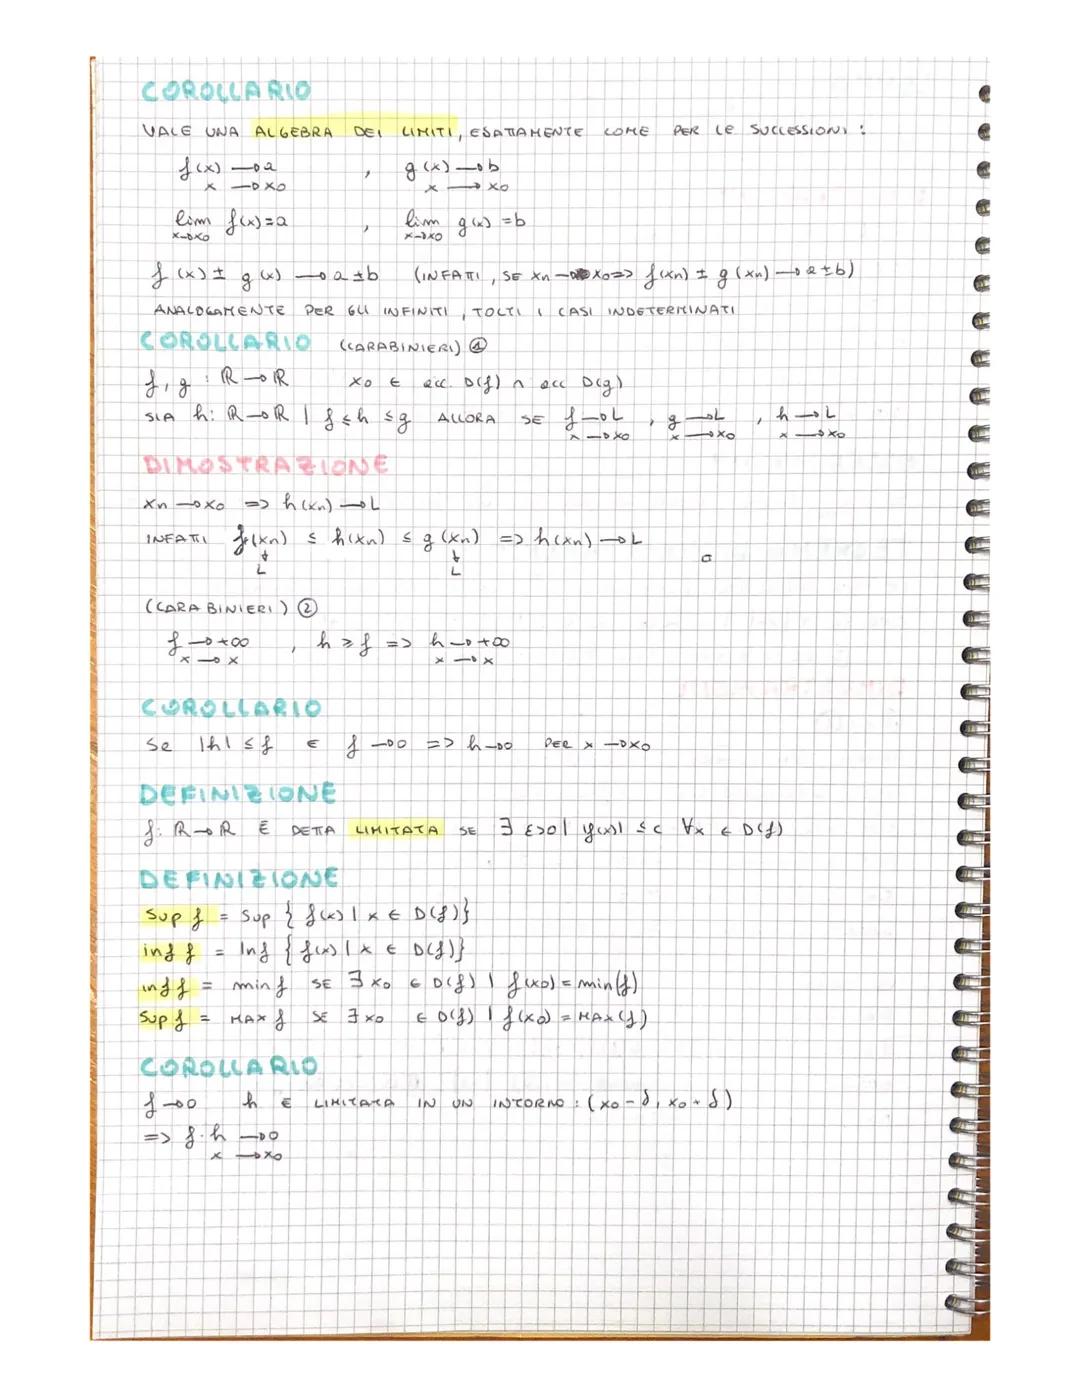 COROLLARIO
VALE UNA ALGEBRA DEI LIMITI, ESATTAMENTE COME PER LE SUCCESSIONI :
f(x) → a , g(x) → b
x → x0 x → x0
lim f(x)=a , lim g(x) =b
x→x0 x→x0
f(x) ± g(x) → a ± b (INFATTI, SE xn → x0 => f(xn) ± g(xn) → a ± b)
ANALOGAMENTE PER GLI INFINITI, TOLTI I CASI INDETERMINATI
COROLLARIO (CARABINIERI) ①
f, g : ℝ → ℝ x0 ∈ acc. D(f) ∩ acc D(g)
SIA h: ℝ → ℝ | f ≤ h ≤ g ALLORA SE f → L , g → L , h → L
x → x0 x → x0 x → x0
DIMOSTRAZIONE
xn → x0 => h(xn) → L
INFATTI f(xn) ≤ h(xn) ≤ g(xn) => h(xn) → L □
↓ ↓
L L
(CARABINIERI) ②
f → +∞ , h ≥ f => h → +∞
x → x x → x
COROLLARIO
Se |h| ≤ f E f → 0 => h → 0 PER x → x0
DEFINIZIONE
f: ℝ → ℝ È DETTA LIMITATA SE ∃ ε>0 | |f(x)| ≤ c ∀x ∈ D(f)
DEFINIZIONE
Sup f = Sup { f(x) | x ∈ D(f)}
inf f = Inf { f(x) | x ∈ D(f)}
inf f = min f SE ∃ x0 ∈ D(f) | f(x0) = min(f)
Sup f = MAX f SE ∃ x0 ∈ D(f) | f(x0) = MAX(f)
COROLLARIO
f → 0 h È LIMITATA IN UN INTORNO : (x0 - δ, x0 + δ)
=> f·h → 0
x → x0